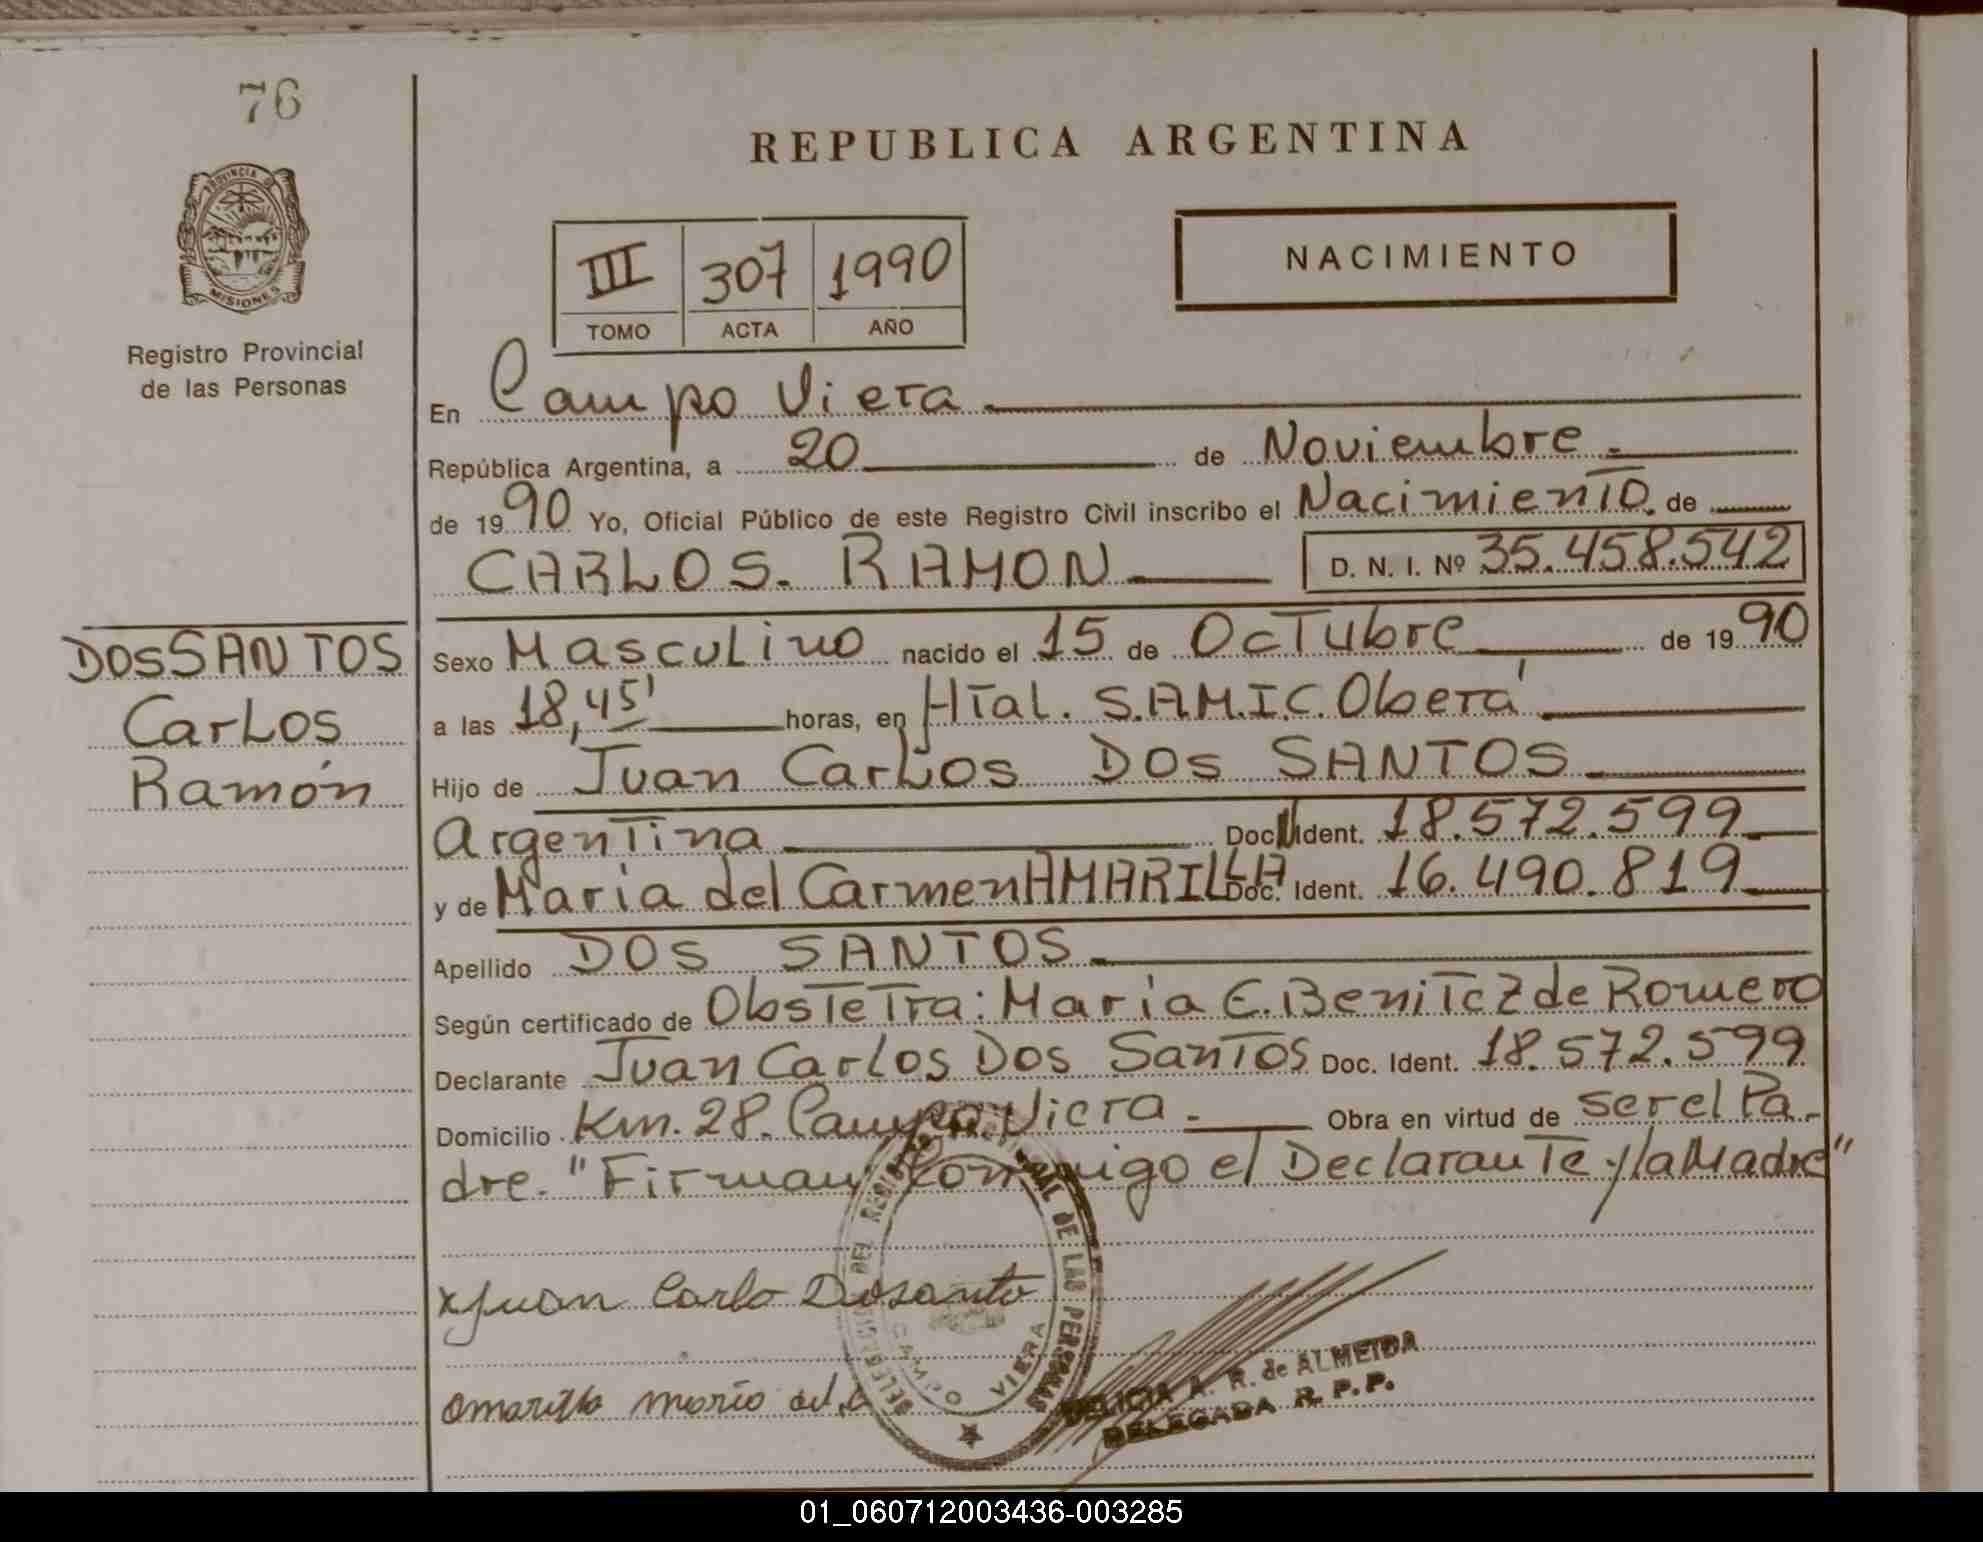 76
PROVINCIA DE
MISIONES
Registro Provincial
de las Personas
DOS SANTOS
Carlos
Ramón
REPUBLICA ARGENTINA
III 307 1990
TOMO ACTA AÑO
NACIMIENTO
En Campo Viera
República Argentina, a 20 de Noviembre.
de 1990 Yo, Oficial Público de este Registro Civil inscribo el Nacimiento. de
CARLOS. RAMON D. N. I. Nº 35.458.542
Sexo Masculino nacido el 15 de Octubre de 1990
a las 18,45' horas, en Htal. S.A.M.I.C. Oberá
Hijo de Juan Carlos DOS SANTOS
Argentina Doc. Ident. 18.572.599
y de Maria del Carmen AMARILLA Doc. Ident. 16.490.819
Apellido DOS SANTOS
Según certificado de Obstetra: Maria E. Benitez de Romero
Declarante Juan Carlos Dos Santos Doc. Ident. 18.572.599
Domicilio Km. 28. Campo Viera. Obra en virtud de ser el Pa-
dre. "Firman conmigo el Declarante y la Madre"
x Juan Carlo Dosanto
amarilla maria del c
DELEGACION DEL REGISTRO PROVINCIAL DE LAS PERSONAS
CAMPO VIERA
DELICIA A. R. de ALMEIDA
DELEGADA R. P. P.
01_060712003436-003285